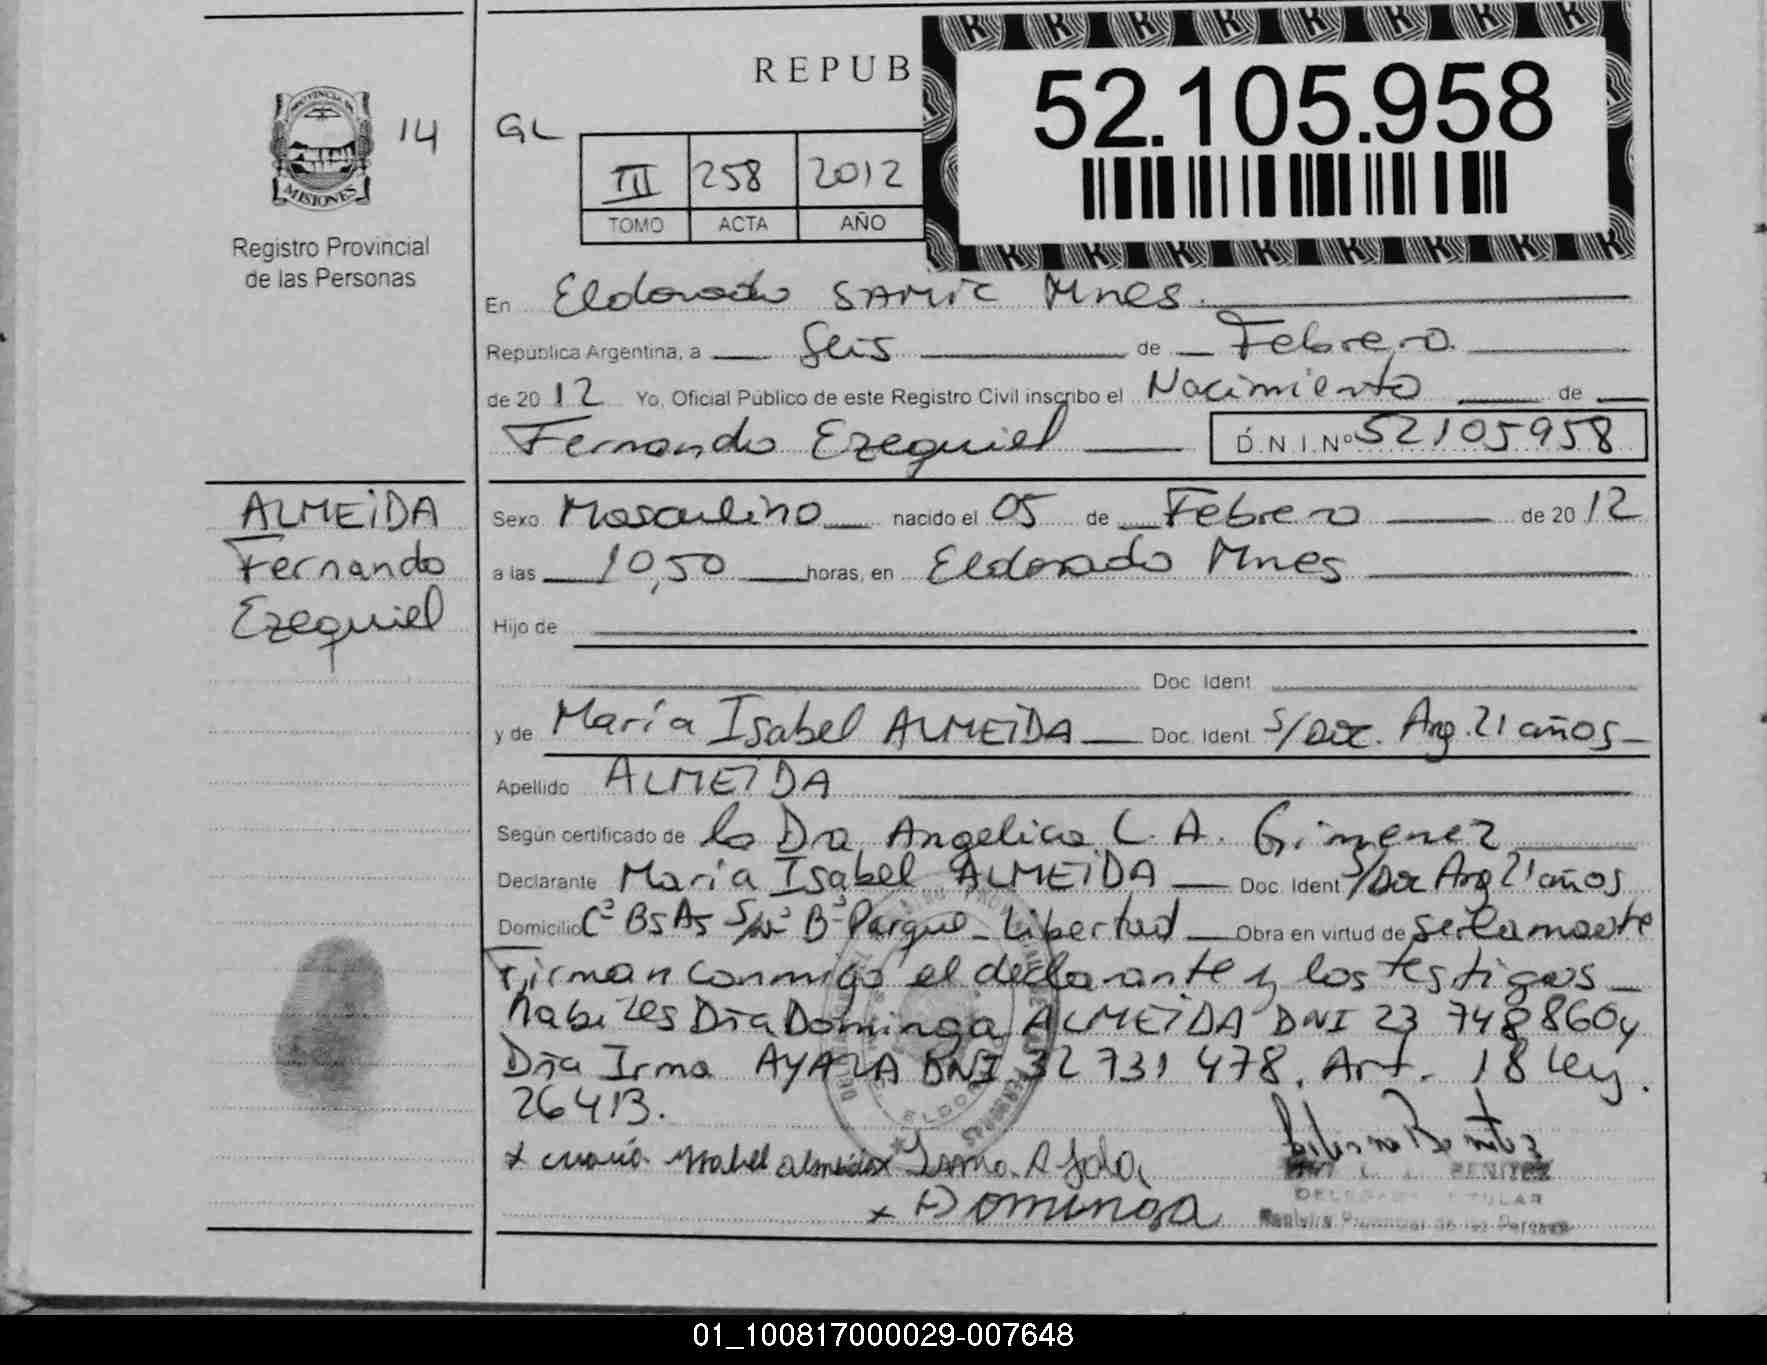 REPUB
52.105.958
PROVINCIA DE
MISIONES
14
GL
III 258 2012
TOMO ACTA AÑO
Registro Provincial
de las Personas
En Eldorado SAMIC Mnes.
República Argentina, a Seis de Febrero
de 2012 Yo, Oficial Público de este Registro Civil inscribo el Nacimiento de
Fernando Ezequiel D.N.I. Nº 52105958
ALMEIDA
Fernando
Ezequiel
Sexo Masculino nacido el 05 de Febrero de 2012
a las 10,50 horas, en Eldorado Mnes
Hijo de
Doc. Ident.
y de María Isabel ALMEIDA Doc. Ident. S/Doc. Arg. 21 años
Apellido ALMEIDA
Según certificado de la Dra Angelica C. A. Gimenez
Declarante María Isabel ALMEIDA Doc. Ident. S/Doc Arg 21 años
Domicilio Cº Bs As S/Nº Bº Parque Libertad Obra en virtud de ser la madre
Firman conmigo el declarante y los testigos
habiles Dña Dominga ALMEIDA DNI 23 748860 y
Dña Irma AYALA DNI 32 731 478. Art. 18 Ley.
26413.
x maria Isabel almeida x Irma Ayala
x Dominga
BENITEZ
DELEGADA TITULAR
Registro Provincial de las Personas
01_100817000029-007648